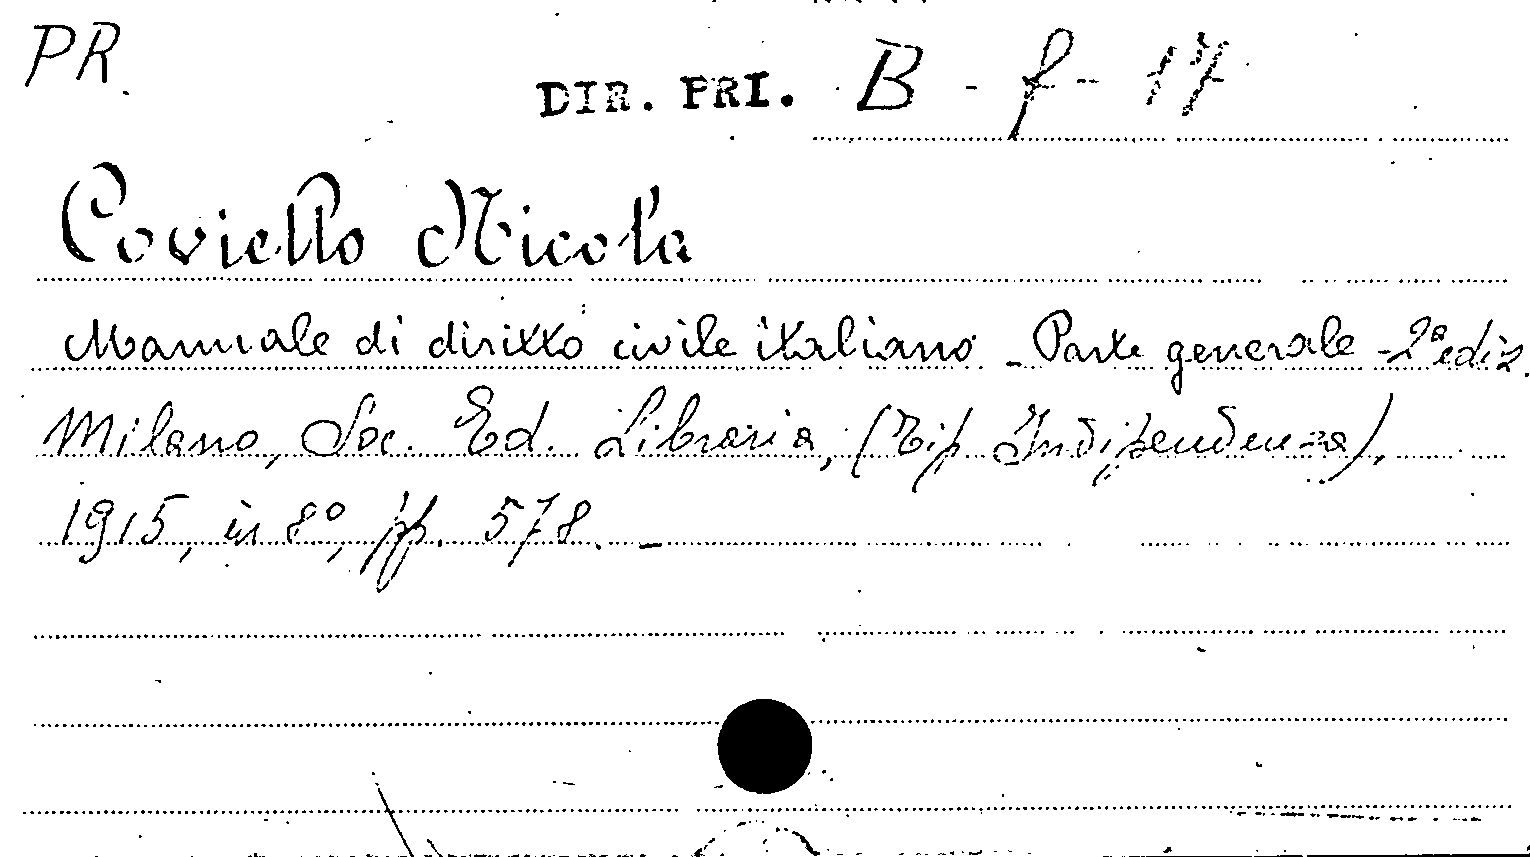 PR.
DIR. PRI. B - f - 17
Coviello Nicola
Manuale di diritto civile italiano - Parte generale - 2ª ediz.
Milano, Soc. Ed. Libraria, (Tip. Indipendenza),
1915, in 8º, pp. 578. -